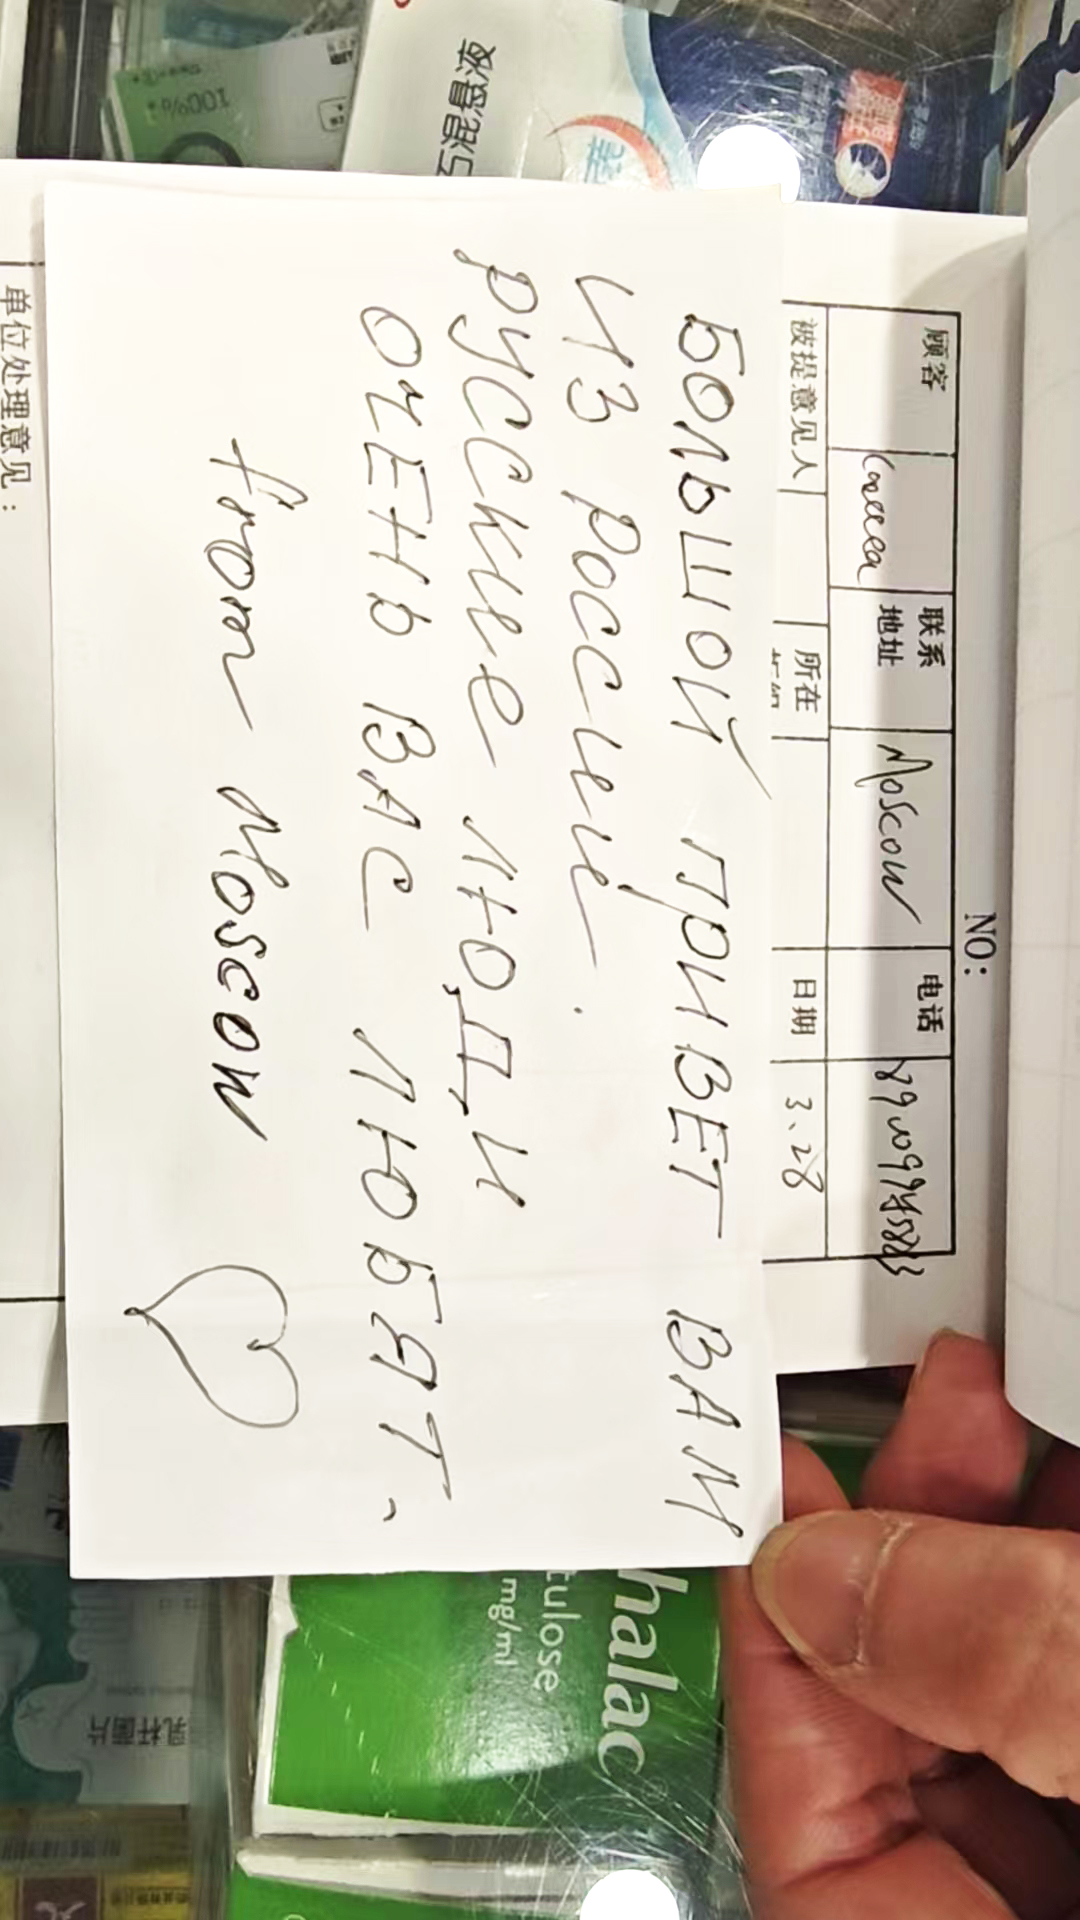 NO:
顾客
联系地址
Moscow
电话
被提意见人
所在
日期
3.28
БОЛЬШОЙ ПРИВЕТ ВАМ
ИЗ России.
РУССКИЕ ЛЮДИ
ОЧЕНЬ ВАС ЛЮБЯТ.
from Moscow
单位处理意见：
石混悬液
100%
halac
tulose
mg/ml
乳杆菌片